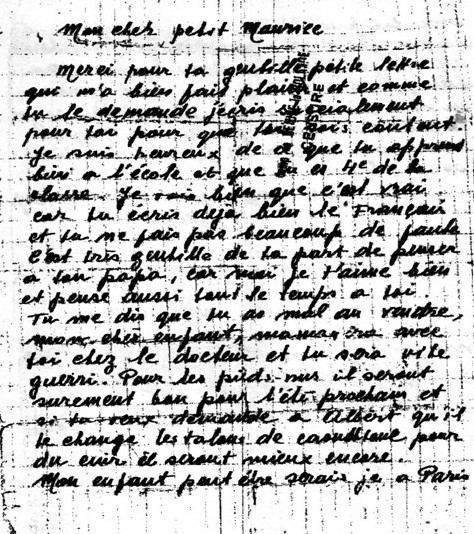 Mon cher petit Maurice
Merci pour ta gentille petite lettre
qui m'a bien fais plaisir et comme
tu le demande j'ecris specialement
pour toi pour que tu sois content.
Je suis heureux de ce que tu apprend
bien a l'école et que tu es 4e de la
classe. Je vois bien que c'est vrai
car tu écris deja bien le Français
et tu ne fais pas beaucoup de faute
C'est tres gentille de ta part de penser
a ton papa, car moi je t'aime bien
et pense aussi tout le temps a toi
Tu me dis que tu as mal au ventre,
mon cher enfant, maman ira avec
toi chez le docteur et tu sera vite
guerri. Pour les pieds-nus il seront
surement bon pour l'été prochain et
si tu veux demande a Albert qu'il
te change les talons de caoutchouc pour
du cuir il seront mieux encore.
Mon enfant peut être serais je a Paris
CENSURE